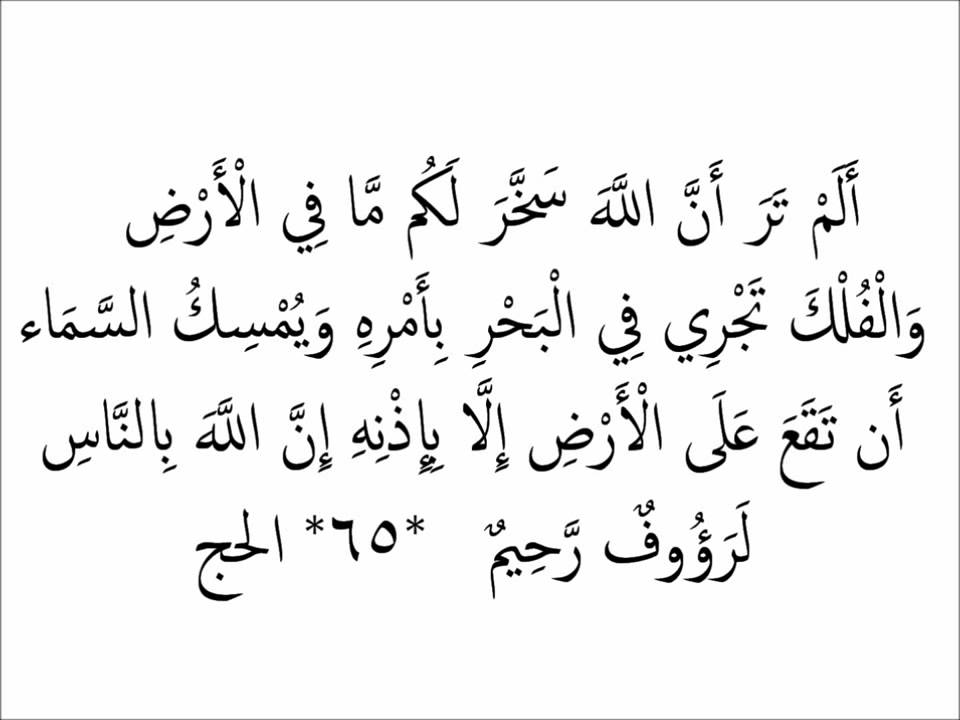 أَلَمْ تَرَ أَنَّ اللَّهَ سَخَّرَ لَكُم مَّا فِي الْأَرْضِ
وَالْفُلْكَ تَجْرِي فِي الْبَحْرِ بِأَمْرِهِ وَيُمْسِكُ السَّمَاء
أَن تَقَعَ عَلَى الْأَرْضِ إِلَّا بِإِذْنِهِ إِنَّ اللَّهَ بِالنَّاسِ
لَرَؤُوفٌ رَّحِيمٌ *٦٥* الحج